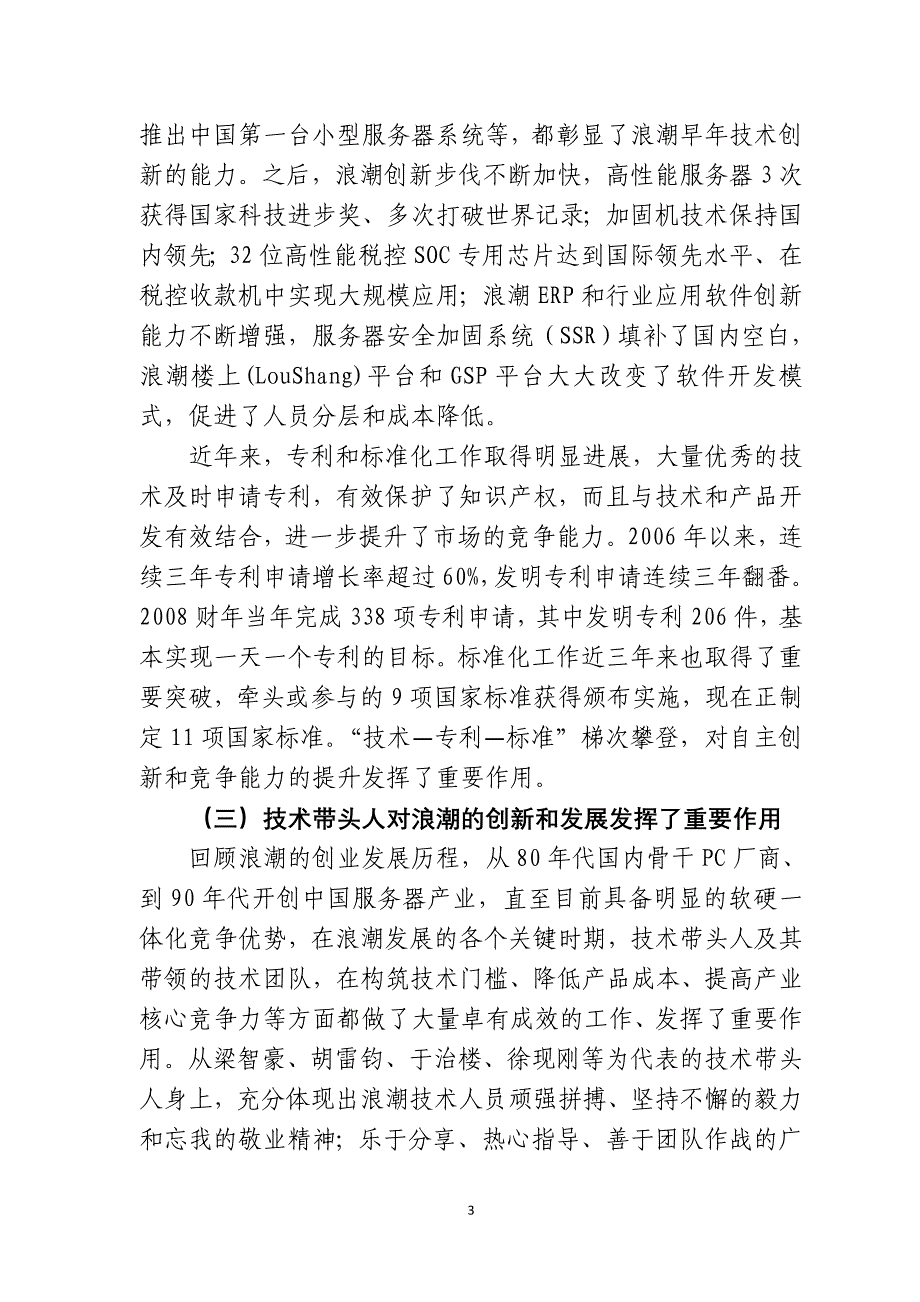 推出中国第一台小型服务器系统等，都彰显了浪潮早年技术创
新的能力。之后，浪潮创新步伐不断加快，高性能服务器 3 次
获得国家科技进步奖、多次打破世界记录；加固机技术保持国
内领先；32 位高性能税控 SOC 专用芯片达到国际领先水平、在
税控收款机中实现大规模应用；浪潮 ERP 和行业应用软件创新
能力不断增强，服务器安全加固系统（SSR）填补了国内空白，
浪潮楼上(LouShang)平台和 GSP 平台大大改变了软件开发模
式，促进了人员分层和成本降低。
近年来，专利和标准化工作取得明显进展，大量优秀的技
术及时申请专利，有效保护了知识产权，而且与技术和产品开
发有效结合，进一步提升了市场的竞争能力。2006 年以来，连
续三年专利申请增长率超过 60%，发明专利申请连续三年翻番。
2008 财年当年完成 338 项专利申请，其中发明专利 206 件，基
本实现一天一个专利的目标。标准化工作近三年来也取得了重
要突破，牵头或参与的 9 项国家标准获得颁布实施，现在正制
定 11 项国家标准。“技术—专利—标准”梯次攀登，对自主创
新和竞争能力的提升发挥了重要作用。
（三）技术带头人对浪潮的创新和发展发挥了重要作用
回顾浪潮的创业发展历程，从 80 年代国内骨干 PC 厂商、
到 90 年代开创中国服务器产业，直至目前具备明显的软硬一
体化竞争优势，在浪潮发展的各个关键时期，技术带头人及其
带领的技术团队，在构筑技术门槛、降低产品成本、提高产业
核心竞争力等方面都做了大量卓有成效的工作、发挥了重要作
用。从梁智豪、胡雷钧、于治楼、徐现刚等为代表的技术带头
人身上，充分体现出浪潮技术人员顽强拼搏、坚持不懈的毅力
和忘我的敬业精神；乐于分享、热心指导、善于团队作战的广
3